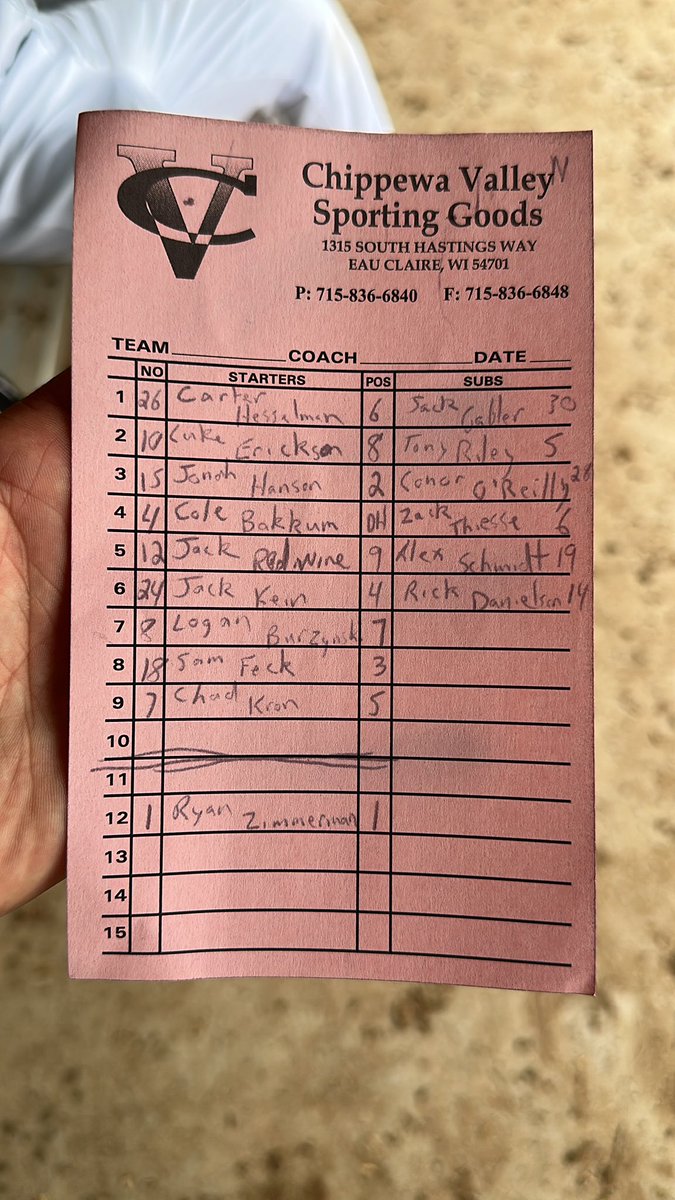 VC
Chippewa Valley N
Sporting Goods
1315 SOUTH HASTINGS WAY
EAU CLAIRE, WI 54701
P: 715-836-6840 F: 715-836-6848
TEAM COACH DATE
NO STARTERS POS SUBS
1 26 Carter Hesselman 6 Jack 30
2 10 Luke Erickson 8 Tony Riley 5
3 15 Jonah Hanson 2 Conor O'Reilly 28
4 4 Cole Bakkum DH Zack Thiesse 6
5 12 Jack Redwine 9 Alex Schmidt 19
6 24 Jack Kein 4 Rick Danielson 14
7 8 Logan Burzynski 7
8 18 Sam Feck 3
9 7 Chad Kron 5
10
11
12 1 Ryan Zimmerman 1
13
14
15